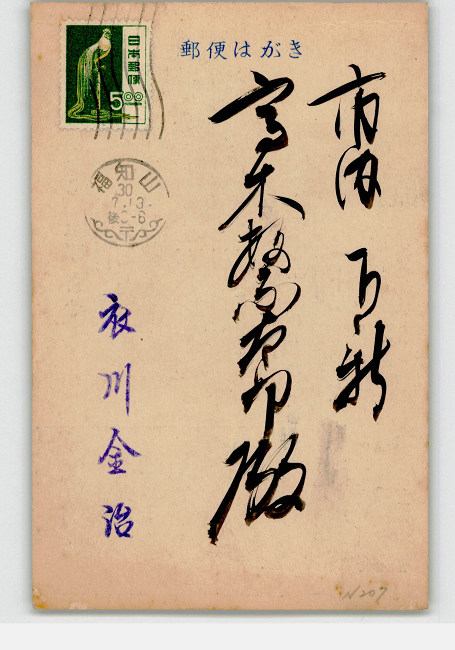 郵便はがき
日本郵便
5.00
福知山
30
7.13.
後0-6
市内 下新
高木
殿
衣川金治
N207